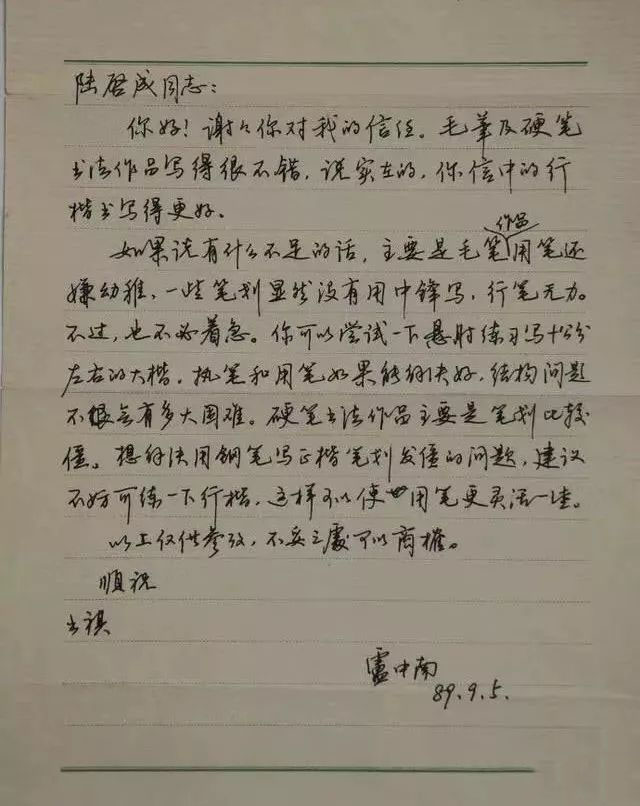 陆啓成同志：
你好！谢々你对我的信任。毛筆及硬笔
书法作品写得很不错，说实在的，你信中的行
楷书写得更好。
如果说有什么不足的话，主要是毛笔作品用笔还
嫌幼稚，一些笔划显然没有用中锋写，行笔无力。
不过，也不必着急。你可以尝试一下悬肘练习写十公分
左右的大楷。执笔和用笔如果能解决好，结构问题
不根会有多大困难。硬笔书法作品主要是笔划比较
僵。想解决用钢笔写正楷笔划发僵的问题，建议
不妨可练一下行楷，这样可以使用笔更灵活一些。
以上仅供参考，不妥之處可以商榷。
顺祝
书祺
盧中南
89.9.5.